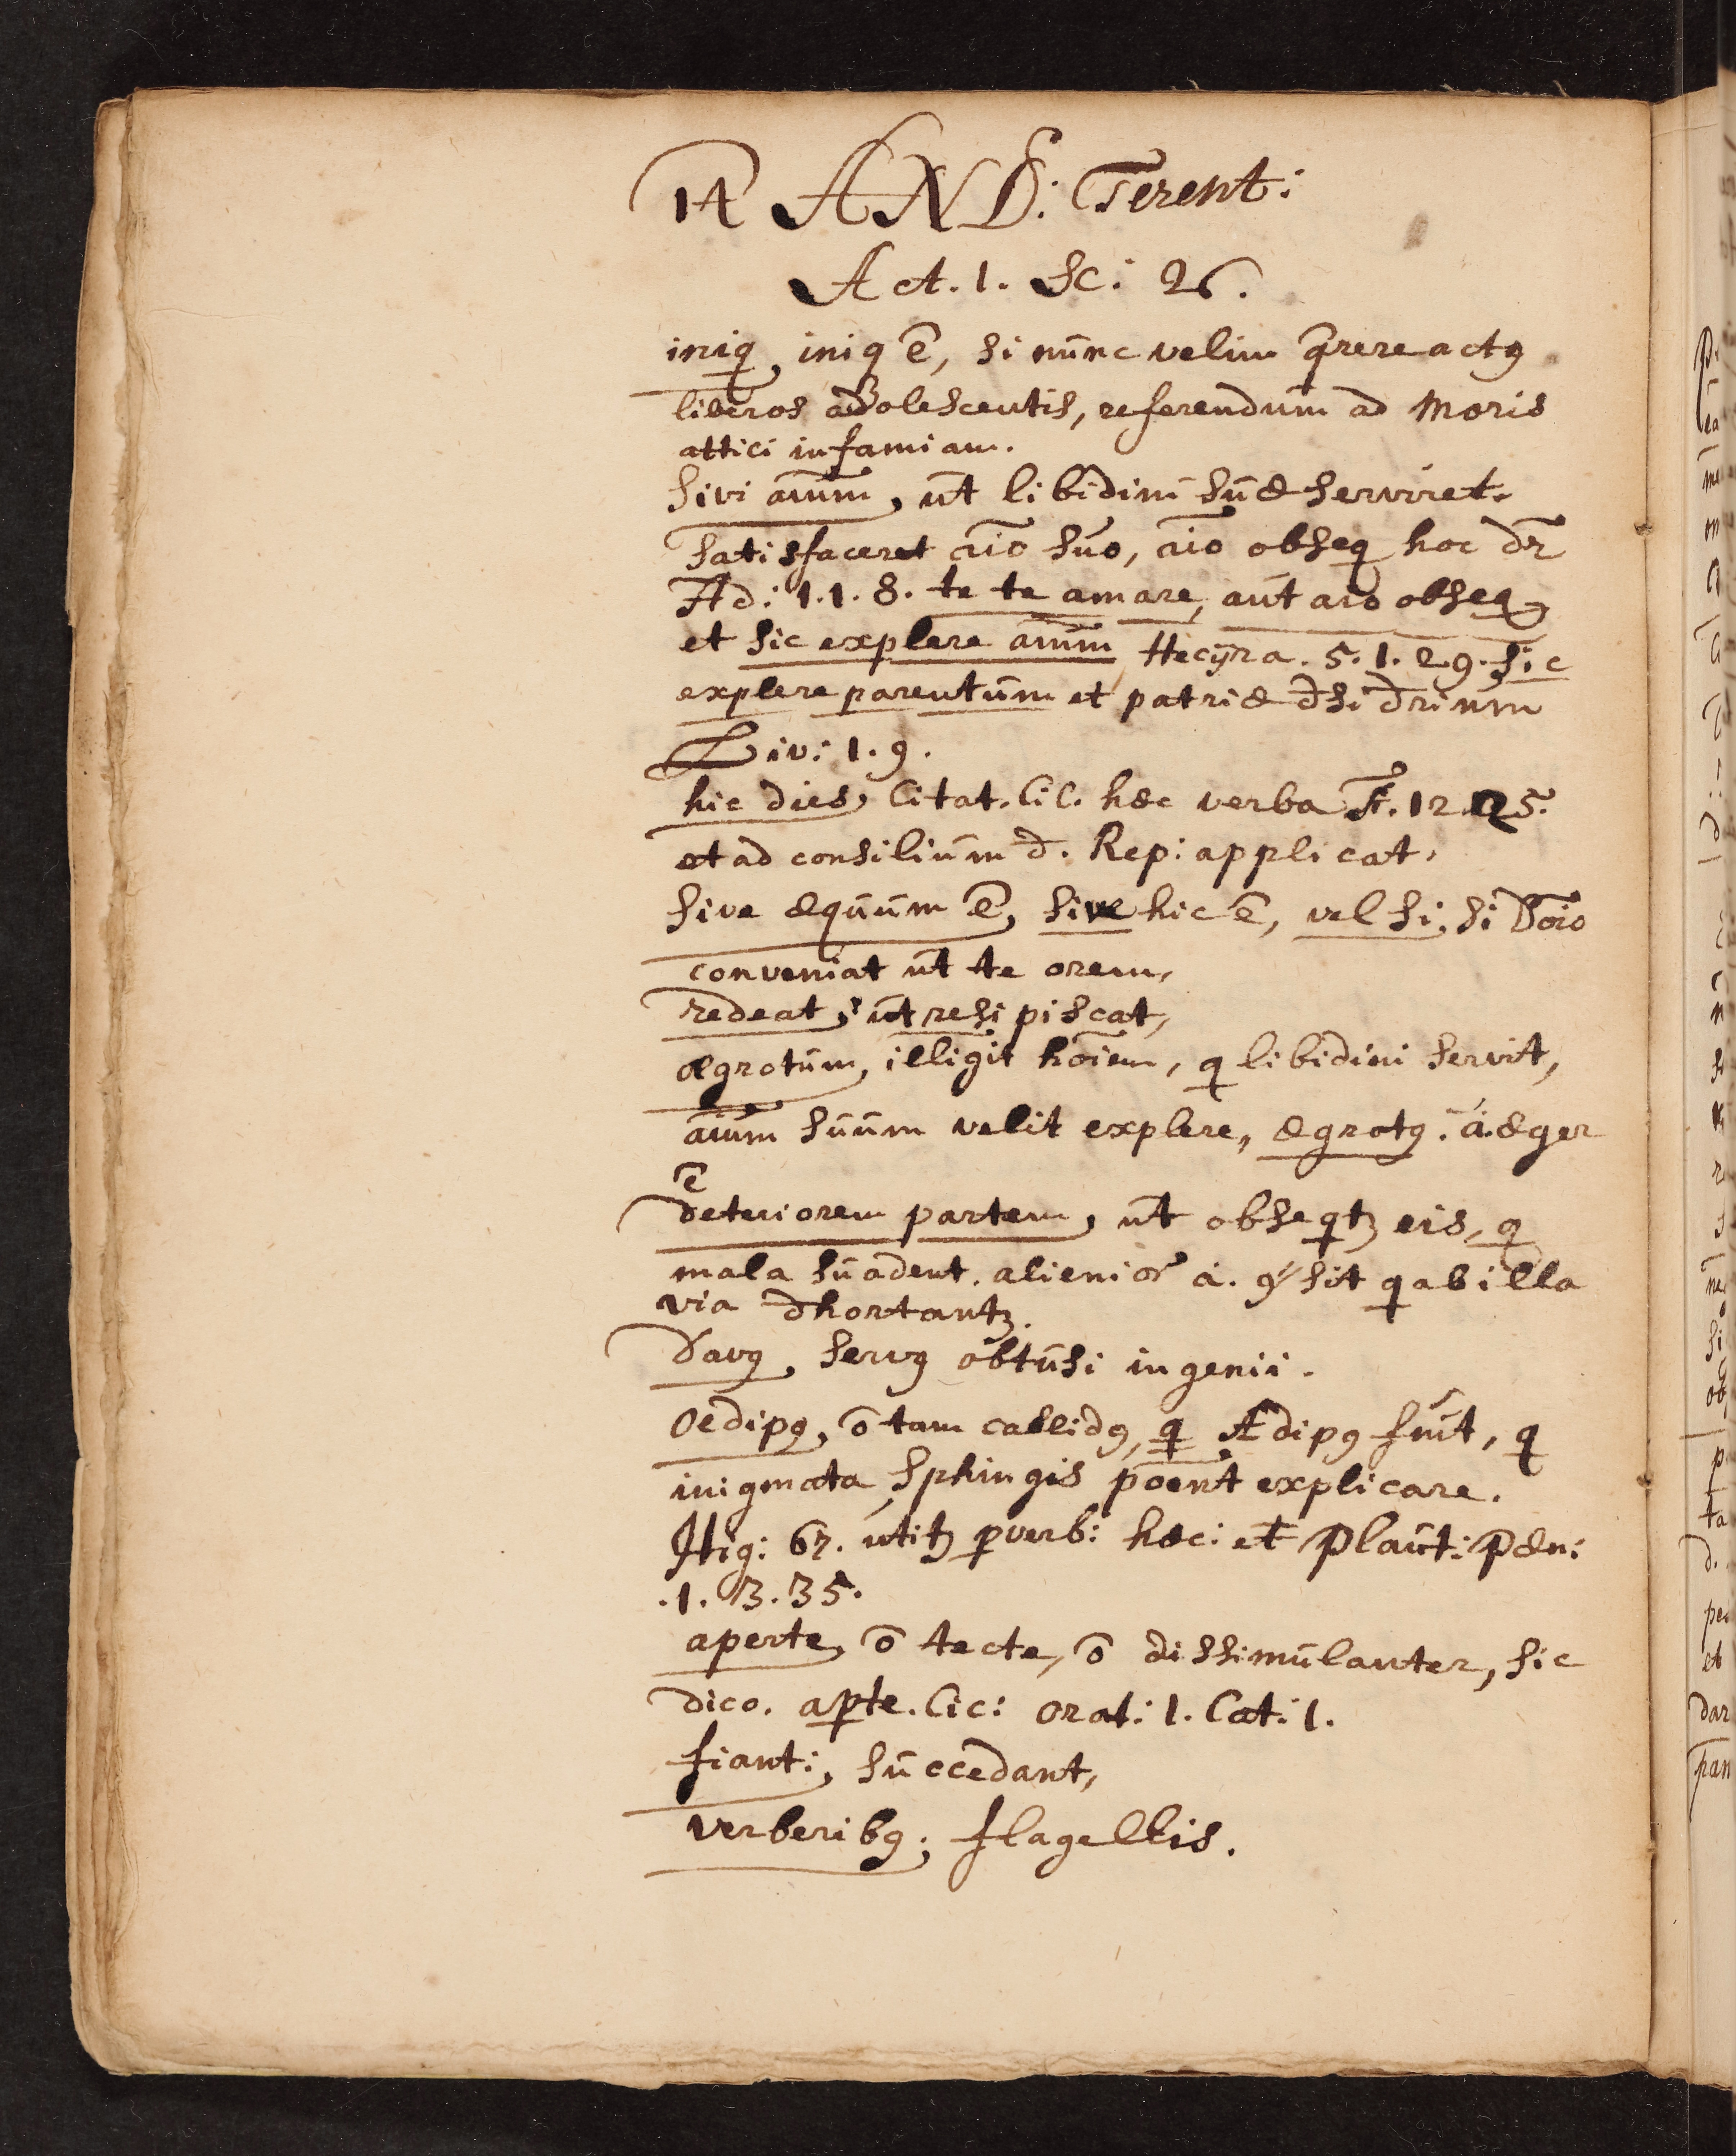 14 AND: Terent:
Act. 1. Sc: 2.
iniq, iniq ē, si nunc velim q̄rere actꝯ
liberos adolescentis, referendum ad Moris
attici infamiam.
Sivi aīum, ut libidini suæ serviret.
Satisfaceret aīo suo, aīo obseq hoc dr̄
Ad: 1.1.8. te te amare, aut aīo obseq,
et sic explere aīum Hecyra. 5.1.29. sic
explere parentum et patriæ dsidrium
Liv: 1.9.
hic dies, Citat. Cic. hæc verba F. 12 25.
et ad consilium d. Rep: applicat.
Sive æquum ē, sive hic ē, vel si, si
conveniat ut te orem,
redeat, ut resipiscat,
ægrotum, illigit hōiem, q libidini servit,
aīum suum velit explere, ægrotꝯ. a. æger
ē
deteriorem partem, ut obseqtꝫ eis, q
mala suadent. alienior a. sit q ab illa
via dhortantꝫ.
Davꝯ, servꝯ obtusi ingenii.
Oedipꝯ, ō tam callidꝯ, q Ædipꝯ fuit, q
inigmata Sphingis poent explicare.
Hig: 67. utitꝫ pverb: hæc: et Plaut: Pæn:
.1.3.35.
aperte, ō tecte, ō dissimulanter, sic
dico. apte. Cic: orat: 1. Cat: 1.
fiant:, succedant,
verberibꝯ; flagellis.